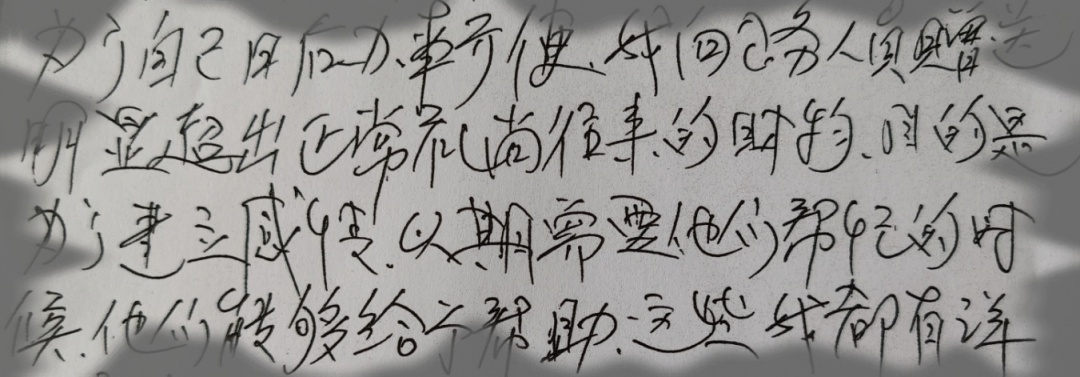 为了自己日后办事方便，我向公务人员赠送
明显超出正常礼尚往来的财物，目的是
为了建立感情，以期需要他们帮忙的时
候，他们能够给予帮助，这些我都有详